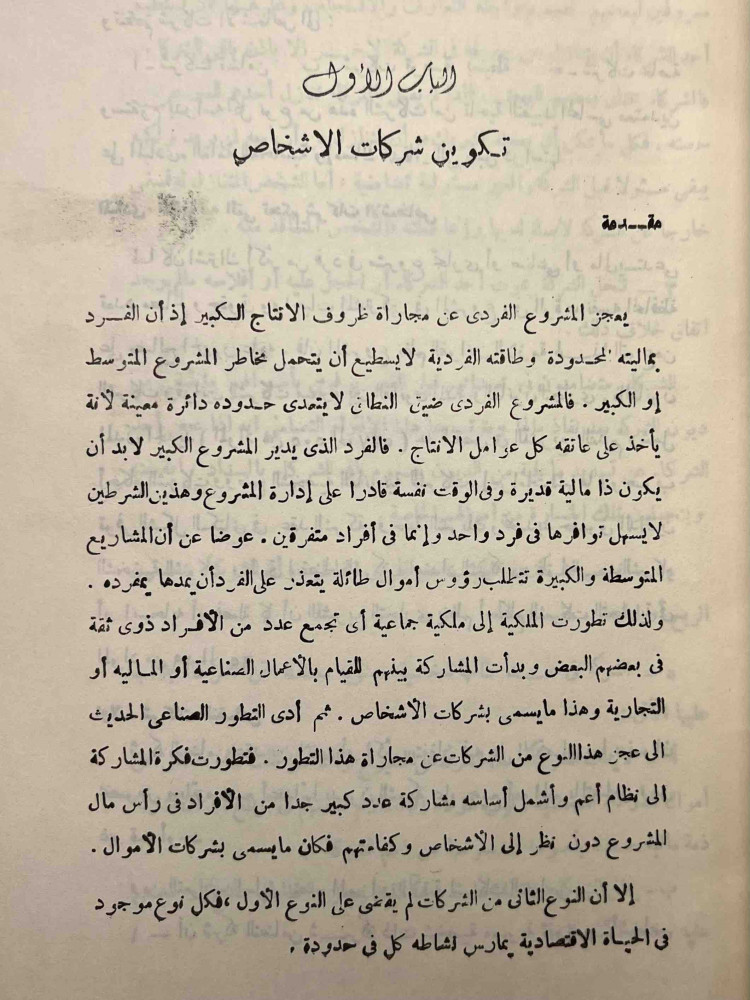 الباب الأول
تكوين شركات الاشخاص
مقـــدمة
يعجز المشروع الفردى عن مجاراة ظروف الانتاج الكبير إذ أن الفــرد
بماليته المحــدودة وطاقته الفردية لايسطيع أن يتحمل مخاطر المشروع المتوسط
إو الكبير . فالمشروع الفردى ضيق النطاق لايتعدى حــدوده دائرة معينة لأنة
يأخذ على عاتقه كل عوامل الانتاج . فالفرد الذى يدير المشروع الكبير لابد أن
يكون ذا مالية قديرة وفى الوقت نفسة قادرا على إدارة المشروع وهذين الشرطين
لايسهل توافرها فى فرد واحد وإنما فى أفراد متفرقين . عوضا عن أن المشاريع
المتوسطة والكبيرة تتطلب رؤوس أموال طائلة يتعذر على الفرد أن يمدها بمفرده .
ولذلك تطورت الملكية إلى ملكية جماعية أى تجمع عدد من الأفــراد ذوى ثقة
فى بعضهم البعض وبدأت المشاركة بينهم للقيام بالأعمال الصناعية أو المـاليه أو
التجارية وهذا مايسمى بشركات الأشخاص . ثم أدى التطور الصناعى الحديث
الى عجز هذا النوع من الشركات عن مجاراة هذا التطور . فتطورت فكرة المشاركة
الى نظام أعم وأشمل أساسه مشاركة عدد كبير جدا من الأفراد فى رأس مال
المشروع دون نظر إلى الأشخاص وكفاءتهم فكان مايسمى بشركات الأموال .
إلا أن النوع الثانى من الشركات لم يقضى على النوع الأول ، فكل نوع موجود
فى الحيـاة الاقتصادية يمارس نشاطه كل فى حدودة .